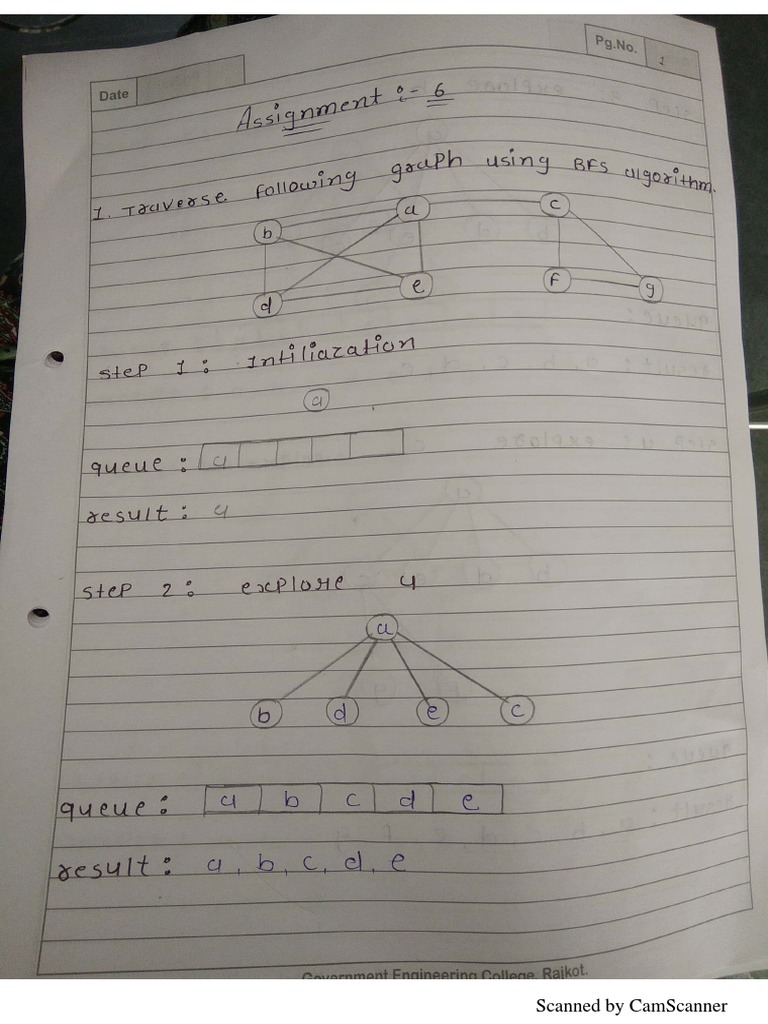 Pg.No. 1
Date
Assignment :- 6
1. Traverse following graph using BFS algorithm.
b a c
d e f g
step 1 : Intiliazation
a
queue : a
result : a
step 2 : explore a
a
b d e c
queue : a b c d e
result : a, b, c, d, e
Government Engineering College, Rajkot.
Scanned by CamScanner